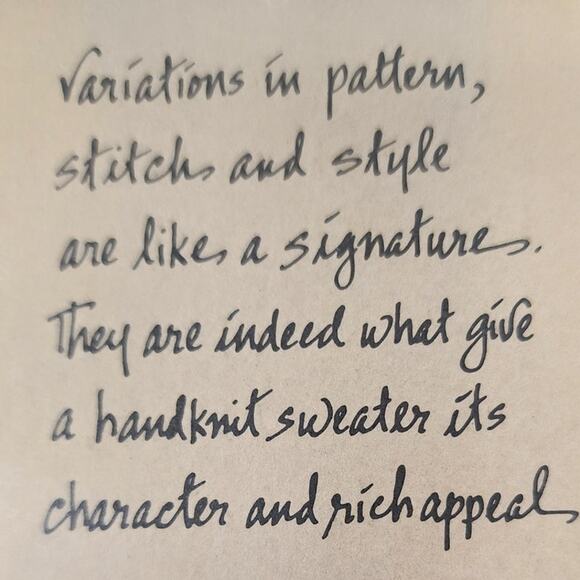 Variations in pattern,
stitch and style
are like a signature.
They are indeed what give
a handknit sweater its
character and rich appeal